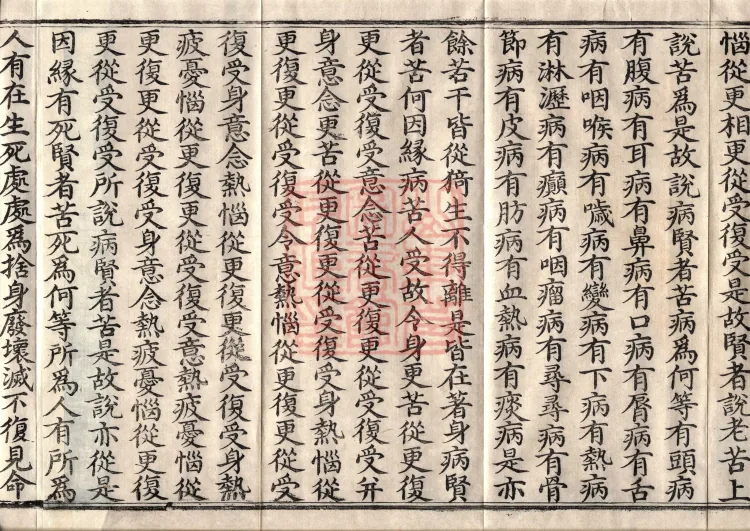 惱從更相更從受復受是故賢者說老苦上
說苦爲是故說病賢者苦病爲何等有頭病
有腹病有耳病有鼻病有口病有脣病有舌
病有咽喉病有噦病有變病有下病有熱病
有淋瀝病有癲病有咽瘤病有尋尋病有骨
節病有皮病有肪病有血熱病有痰病是亦
餘若干皆從猗生不得離是皆在著身病賢
者苦何因緣病苦人受故令身更苦從更復
更從受復受意念苦從更復更從受復受幷
身意念更苦從更復更從受復受身熱惱從
更復更從受復受令意熱惱從更復更從受
復受身意念熱惱從更復更從受復受身熱
疲憂惱從更復更從受復受意熱疲憂惱從
更復更從受復受身意念熱疲憂惱從更復
更從受復受所說病賢者苦是故說亦從是
因緣有死賢者苦死爲何等所爲人有所爲
人有在生死處處爲捨身廢壞滅不復見命